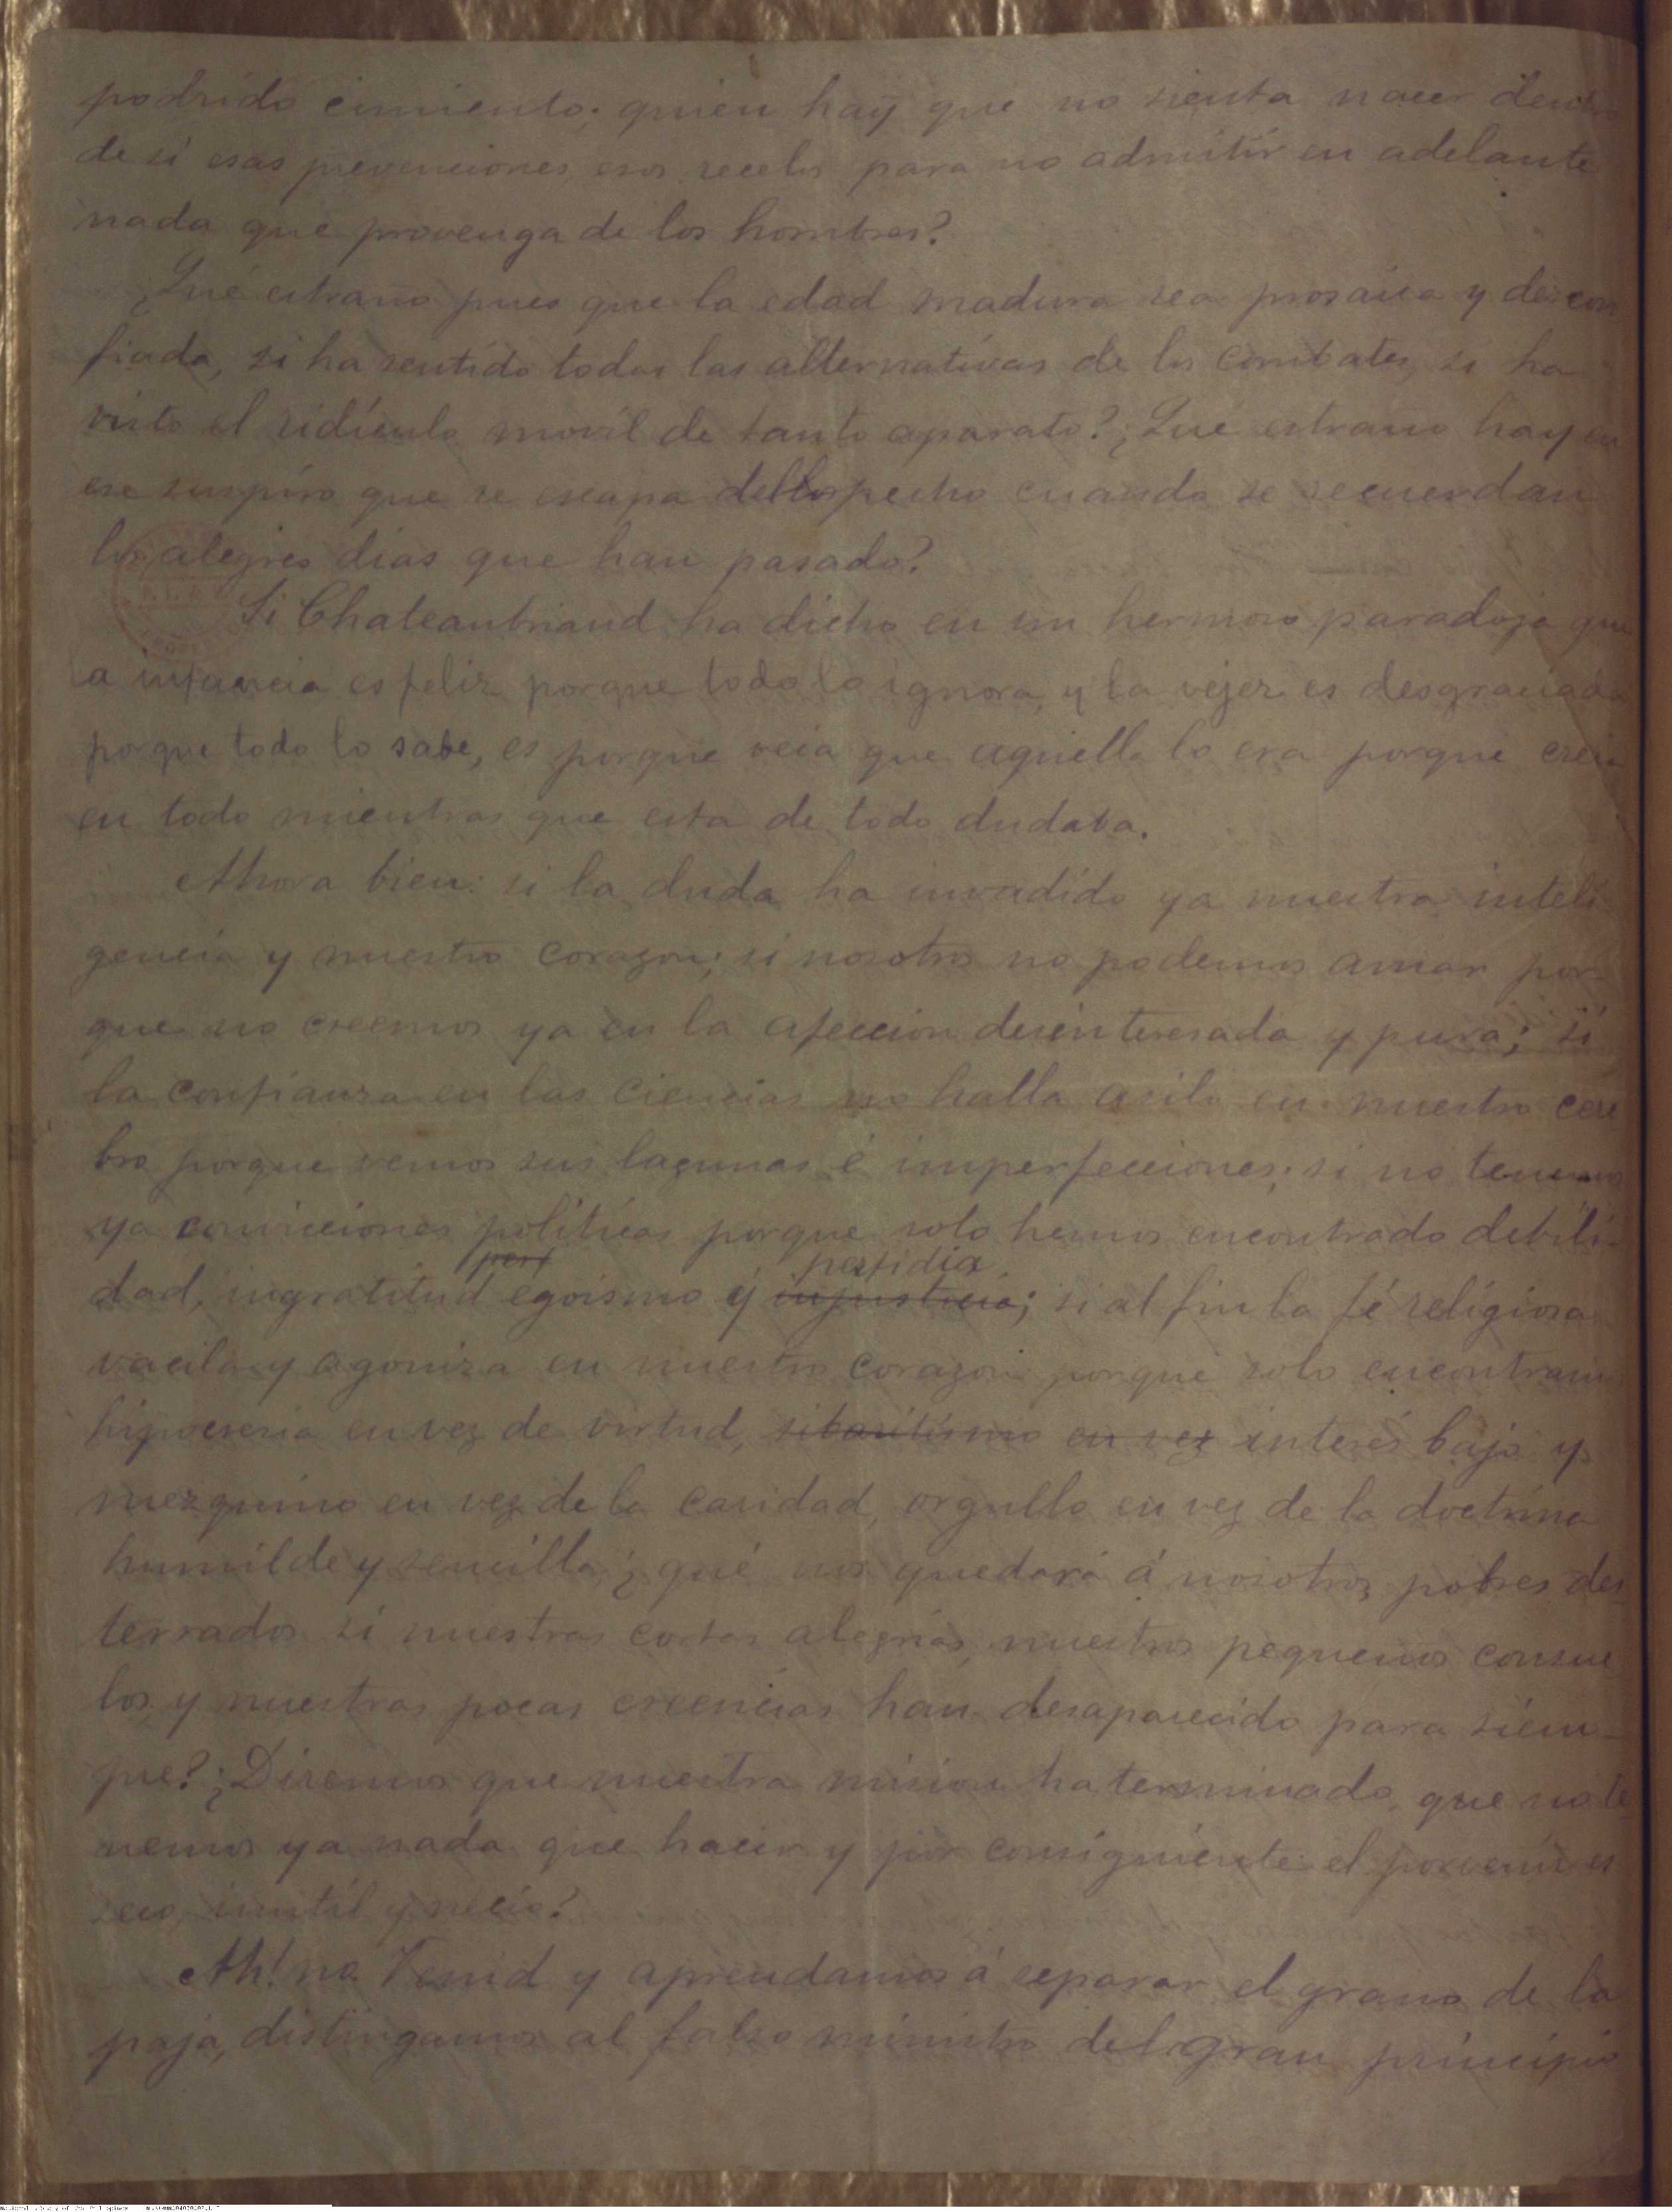 podrido cimiento; quien hay que no sienta nacer dentro
de sí esas prevenciones, esos recelos para no admitir en adelante
nada que provenga de los hombres?
¿Qué estraño pues que la edad madura sea prosaica y descon
fiada, si ha sentido todas las alternativas de los combates, si ha
visto el ridículo movil de tanto aparato? ¿Qué estraño hay en
ese suspiro que se escapa del pecho cuando se recuerdan
los alegres dias que han pasado?
Si Chateaubriand ha dicho en un hermoso paradoja que
la infancia es feliz porque todo lo ignora, y la vejez es desgraciada
porque todo lo sabe, es porque veia que aquella lo era porque creia
en todo mientras que esta de todo dudaba.
Ahora bien: si la duda ha invadido ya nuestra inteli
gencia y nuestro corazon; si nosotros no podemos amar por-
que no creemos ya en la afeccion desinteresada y pura; si
la confianza en las ciencias no halla asilo en nuestro cere
bro porque vemos sus lagunas é imperfecciones; si no tenemos
ya convicciones políticas porque solo hemos encontrado debili-
perf perfidia
dad, ingratitud egoismo y injusticia; si al fin la fé religiosa
vacila y agoniza en nuestro corazon porque solo encontramos
hipocresia en vez de virtud, sibaritismo en vez interés bajo y
mezquino en vez de la caridad, orgullo en vez de la doctrina
humilde y sencilla ¿qué nos quedará á nosotros, pobres des
terrados si nuestras cortas alegrías, nuestros pequeños consue
los, y nuestras pocas creencias han desaparecido para siem-
pre? ¿Diremos que nuestra mision ha terminado, que no te
nemos ya nada que hacer y por consiguiente el porvenir es
seco, inutil y necio?
Ah! no. Venid y aprendamos á separar el grano de la
paja, distingamos al falso ministro del gran principio